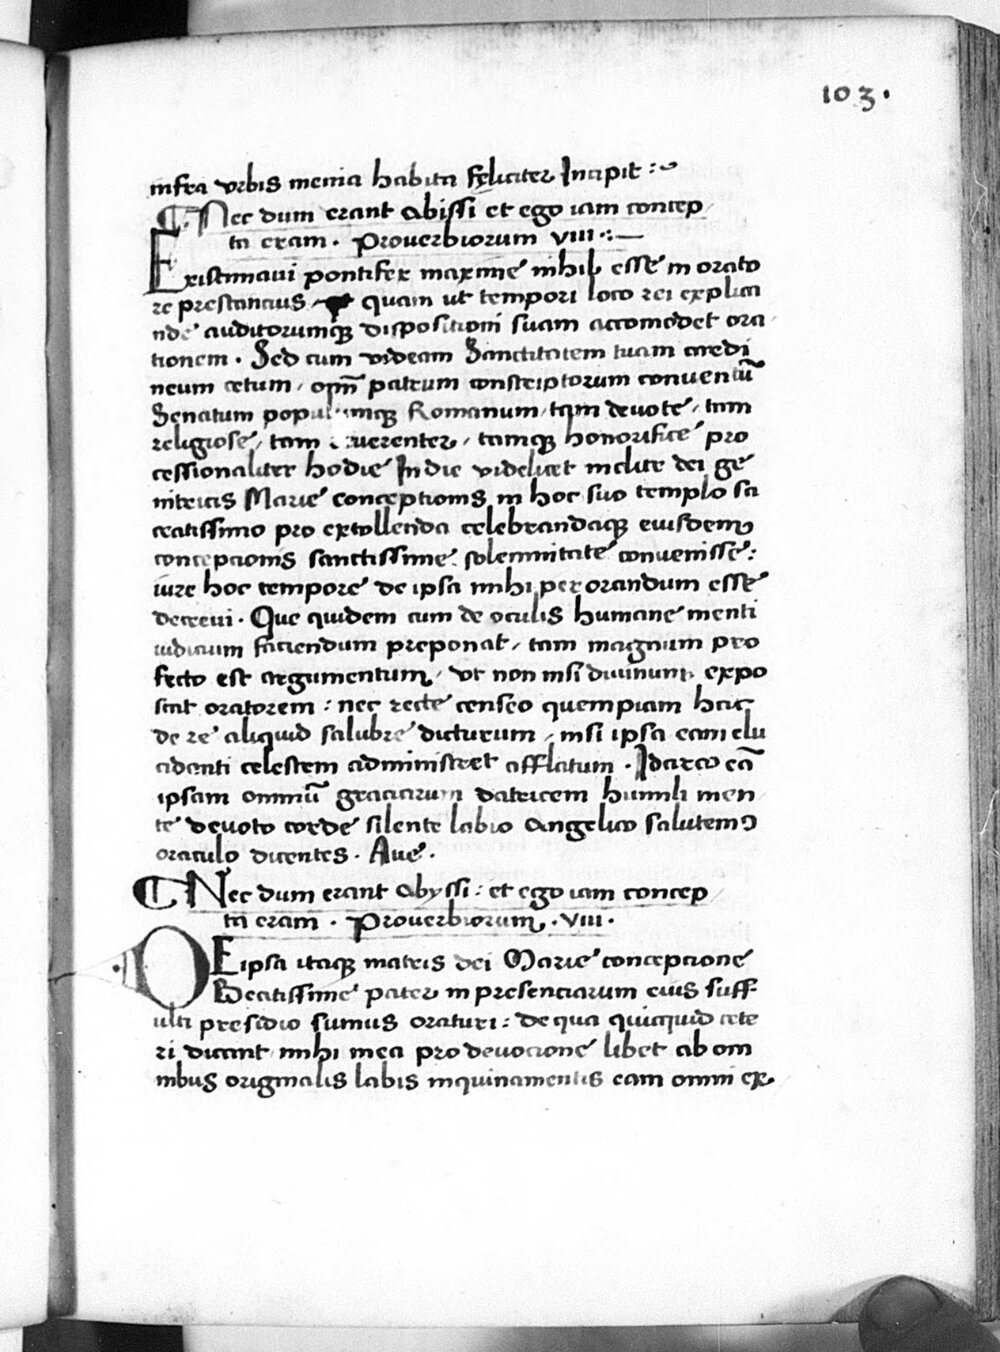 103.
infra vrbis menia habita feliciter Incipit :~
Nec dum erant abissi et ego iam concep
ta eram . Prouerbiorum viii :·—
Existimaui pontifex maxime nihil esse in orato
re prestancius quam ut tempori loco rei explica
nde auditorumq; dispositioni suam accomodet ora
tionem . Sed cum videam Sanctitatem tuam cardi
neum cetum / opm̄ patrum conscriptorum conuentū
Senatum Romanum / tam deuote / tam
religiose / tam / tamq; honorifice pro
cessionaliter hodie In die videlicet inclite dei ge
nitricis Marie conceptionis in hoc suo templo sa
cratissimo pro extollenda celebrandaq; eiusdem
concepcionis sanctissime . solemnitate conuenisse :
iure hoc tempore de ipsa mihi perorandum esse
decreui . Que quidem cum de oculis humane menti
iudicium faciendum preponat / tam magnum pro
fecto est argumentum / vt non nisi diuinum expo
scat oratorem : nec recte censeo quempiam hac
de re aliquid salubre dicturum / nisi ipsa eam elu
cidanti celestem administret afflatum . Idarco eā
ipsam omniū graciarum datricem humili men
te deuoto corde silente labio Angelico salutem
oraculo dicentes . Aue .
Nec dum erant abyssi : et ego iam concep
ta eram . Prouerbiorum . viii .
DE ipsa itaq; matris dei Marie concepcione
Beatissime pater in presenciarum eius suff
ulti presidio sumus oraturi : de qua quicquid cete
ri dicant mihi mea pro deuocione libet ab om
nibus originalis labis inquinamentis eam omni ex